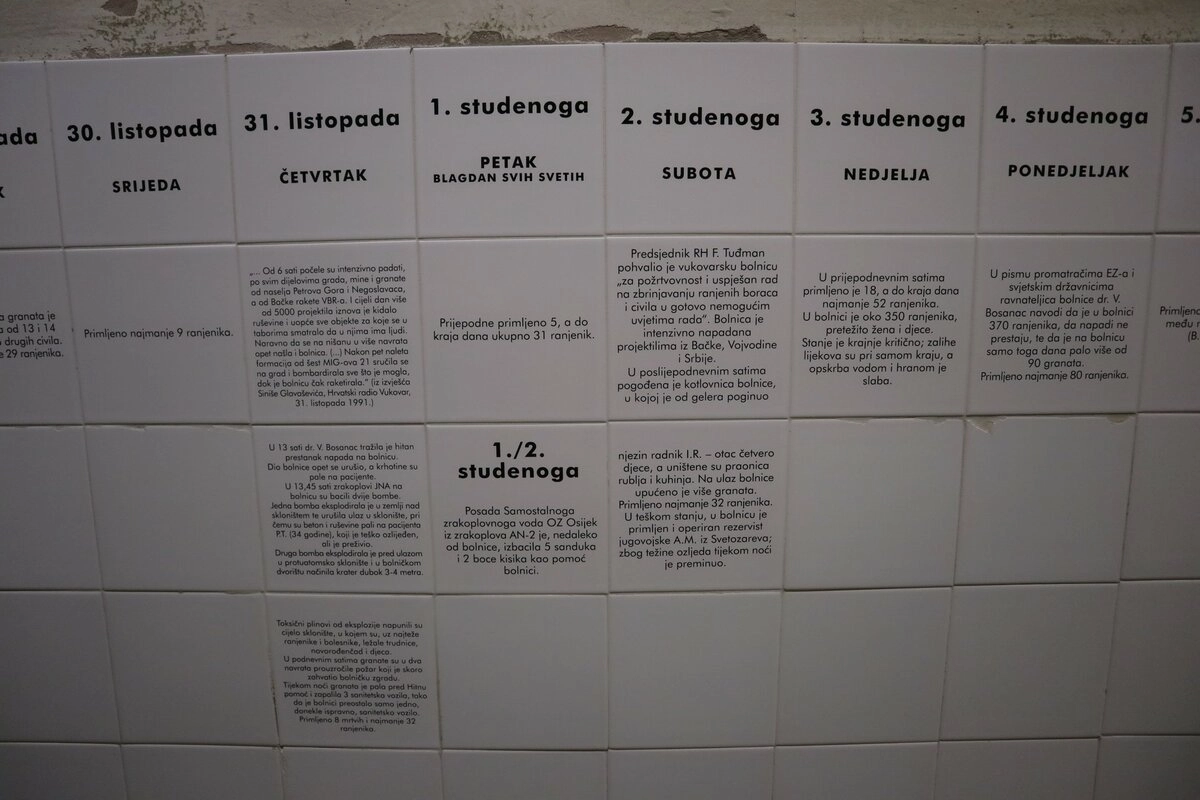 ada
K
a granata je
a od 13 i 14
drugih civila.
e 29 ranjenika.
30. listopada
SRIJEDA
Primljeno najmanje 9 ranjenika.
31. listopada
ČETVRTAK
„... Od 6 sati počele su intenzivno padati,
po svim dijelovima grada, mine i granate
od naselja Petrova Gora i Negoslavaca,
a od Bačke rakete VBR-a. I cijeli dan više
od 5000 projektila iznova je kidalo
ruševine i uopće sve objekte za koje se u
taborima smatralo da u njima ima ljudi.
Naravno da se na nišanu u više navrata
opet našla i bolnica. (...) Nakon pet naleta
formacija od šest MIG-ova 21 sručila se
na grad i bombardirala sve što je mogla,
dok je bolnicu čak raketirala.“ (iz izvješća
Siniše Glavaševića, Hrvatski radio Vukovar,
31. listopada 1991.)
U 13 sati dr. V. Bosanac tražila je hitan
prestanak napada na bolnicu.
Dio bolnice opet se urušio, a krhotine su
pale na pacijente.
U 13,45 sati zrakoplovi JNA na
bolnicu su bacili dvije bombe.
Jedna bomba eksplodirala je u zemlji nad
skloništem te urušila ulaz u sklonište, pri
čemu su beton i ruševine pali na pacijenta
P.T. (34 godine), koji je teško ozlijeđen,
ali je preživio.
Druga bomba eksplodirala je pred ulazom
u protuatomsko sklonište i u bolničkom
dvorištu načinila krater dubok 3-4 metra.
Toksični plinovi od eksplozije napunili su
cijelo sklonište, u kojem su, uz najteže
ranjenike i bolesnike, ležale trudnice,
novorođenčad i djeca.
U podnevnim satima granate su u dva
navrata prouzročile požar koji je skoro
zahvatio bolničku zgradu.
Tijekom noći granata je pala pred Hitnu
pomoć i zapalila 3 sanitetska vozila, tako
da je bolnici preostalo samo jedno,
donekle ispravno, sanitetsko vozilo.
Primljeno 8 mrtvih i najmanje 32
ranjenika.
1. studenoga
PETAK
BLAGDAN SVIH SVETIH
Prijepodne primljeno 5, a do
kraja dana ukupno 31 ranjenik.
1./2.
studenoga
Posada Samostalnoga
zrakoplovnoga voda OZ Osijek
iz zrakoplova AN-2 je, nedaleko
od bolnice, izbacila 5 sanduka
i 2 boce kisika kao pomoć
bolnici.
2. studenoga
SUBOTA
Predsjednik RH F. Tuđman
pohvalio je vukovarsku bolnicu
„za požrtvovnost i uspješan rad
na zbrinjavanju ranjenih boraca
i civila u gotovo nemogućim
uvjetima rada“. Bolnica je
intenzivno napadana
projektilima iz Bačke, Vojvodine
i Srbije.
U poslijepodnevnim satima
pogođena je kotlovnica bolnice,
u kojoj je od gelera poginuo
njezin radnik I.R. – otac četvero
djece, a uništene su praonica
rublja i kuhinja. Na ulaz bolnice
upućeno je više granata.
Primljeno najmanje 32 ranjenika.
U teškom stanju, u bolnicu je
primljen i operiran rezervist
jugovojske A.M. iz Svetozareva;
zbog težine ozljeda tijekom noći
je preminuo.
3. studenoga
NEDJELJA
U prijepodnevnim satima
primljeno je 18, a do kraja dana
najmanje 52 ranjenika.
U bolnici je oko 350 ranjenika,
pretežito žena i djece.
Stanje je krajnje kritično; zalihe
lijekova su pri samom kraju, a
opskrba vodom i hranom je
slaba.
4. studenoga
PONEDJELJAK
U pismu promatračima EZ-a i
svjetskim državnicima
ravnateljica bolnice dr. V.
Bosanac navodi da je u bolnici
370 ranjenika, da napadi ne
prestaju, te da je na bolnicu
samo toga dana palo više od
90 granata.
Primljeno najmanje 80 ranjenika.
5.
Primljeno
među
(B.